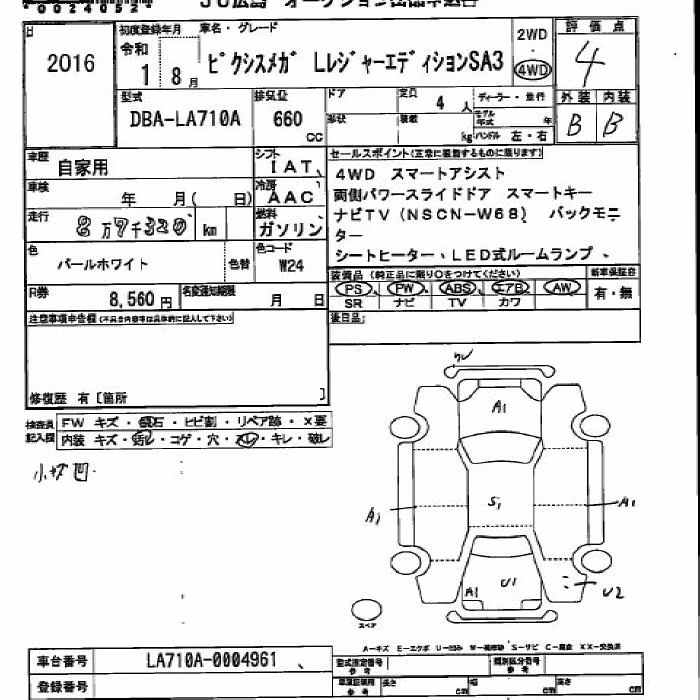 00240524
JU広島 オークション出品申込書
2016
初度登録年月 車名・グレード
令和
1 8月
ピクシスメガ LレジャーエディションSA3
2WD
・
4WD
評価点
4
型式
DBA-LA710A
排気量
660
CC
ドア
形状
定員
4 人
積載
kg
ディーラー・並行
モデル年式 年
ハンドル 左・右
外装 内装
B B
車歴
自家用
シフト
IAT
セールスポイント(正常に機能するものに限ります)
4WD スマートアシスト
両側パワースライドドア スマートキー
ナビTV(NSCN-W68) バックモニ
ター
シートヒーター、LED式ルームランプ、
車検
年 月( 日)
冷房
AAC
走行
8万7千320 km
燃料
ガソリン
色
パールホワイト
色替
色コード
W24
装備品(純正品に限り○をつけてください)
新車保証書
PS PW ABS エアB AW
有・無
SR ナビ TV カワ
R券
8,560円
名変通知期限
月 日
後日品:
注意事項申告欄(不具合内容等は具体的に記入して下さい)
修復歴 有[箇所 ]
検査員
記入欄
FW キズ・飛石・ヒビ割・リペア跡・X要
内装 キズ・汚レ・コゲ・穴・スレ・キレ・破レ
小キズ凹
A1
S1
A1
A1
A1
U1
U2
スペア
A-キズ E-エクボ U-凹み W-補修跡 S-サビ C-腐食 XX-交換済
車台番号
LA710A-0004961
型式指定番号
参考
類別区分番号
参考
登録番号
車庫証明用
参考
長さ cm
幅 cm
高さ cm